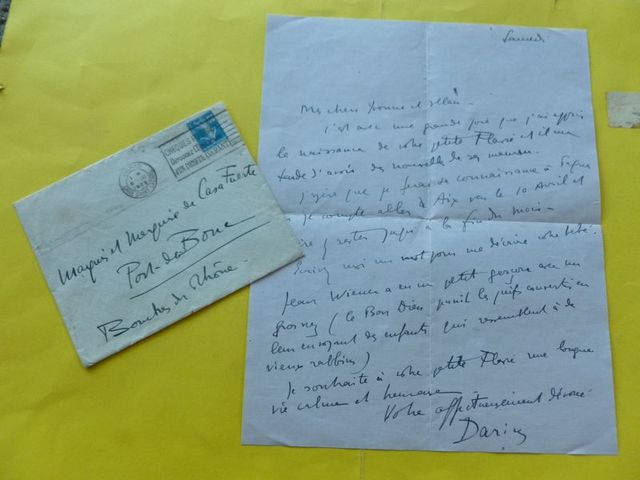 Marquis et Marquise de Casa Fuerte
Port-de-Bouc
Bouches du Rhône
Samedi
Mes chers Yvonne et Illan.
C'est avec une grande joie que j'ai appris
la naissance de votre petite Flavie et il me
tarde d'avoir des nouvelles de sa maman.
J'espère que je ferai sa connaissance à
je compte aller à Aix vers le 10 Avril et
y rester jusqu'à la fin du mois -
moi un mot pour me décrire votre bébé.
Jean Wiener a eu un petit garçon avec un
gros nez (le Bon Dieu punit les juifs convertis en
leur envoyant des enfants qui ressemblent à de
vieux rabbins)
Je souhaite à votre petite Flavie une longue
vie calme et heureuse
Votre affectueusement dévoué